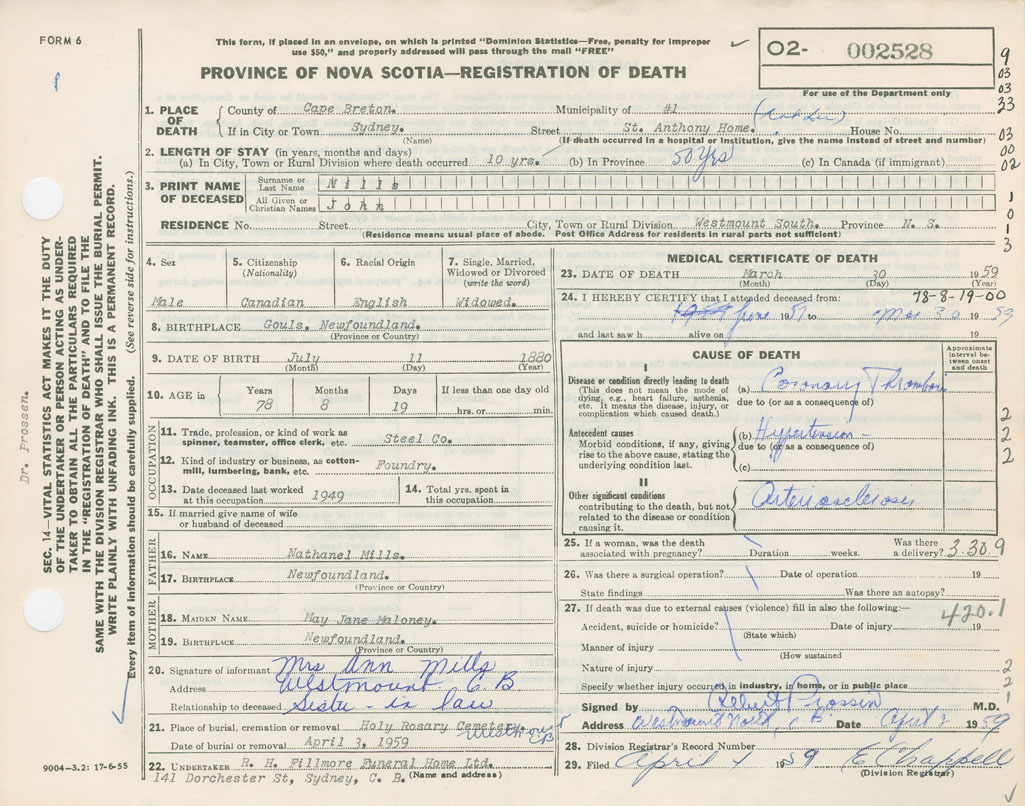 FORM 6
This form, if placed in an envelope, on which is printed "Dominion Statistics—Free, penalty for improper
use $50," and properly addressed will pass through the mail "FREE"
PROVINCE OF NOVA SCOTIA—REGISTRATION OF DEATH
02- 002528
For use of the Department only
9
03
03
33
03
00
02
1
0
1
3
1. PLACE OF DEATH
County of Cape Breton. Municipality of #1
If in City or Town Sydney. Street St. Anthony Home. House No.
(Name) (If death occurred in a hospital or institution, give the name instead of street and number)
2. LENGTH OF STAY (in years, months and days)
(a) In City, Town or Rural Division where death occurred 10 yrs. (b) In Province 50 yrs (c) In Canada (if immigrant)
3. PRINT NAME OF DECEASED
Surname or Last Name Mills
All Given or Christian Names John
RESIDENCE No. Street City, Town or Rural Division Westmount South. Province N. S.
(Residence means usual place of abode. Post Office Address for residents in rural parts not sufficient)
4. Sex Male
5. Citizenship (Nationality) Canadian
6. Racial Origin English
7. Single, Married, Widowed or Divorced (write the word) Widowed.
8. BIRTHPLACE Gouls. Newfoundland.
(Province or Country)
9. DATE OF BIRTH July 11 1880
(Month) (Day) (Year)
10. AGE in Years 78 Months 8 Days 19 If less than one day old hrs. or min.
OCCUPATION
11. Trade, profession, or kind of work as
spinner, teamster, office clerk, etc. Steel Co.
12. Kind of industry or business, as cotton-
mill, lumbering, bank, etc. Foundry.
13. Date deceased last worked
at this occupation. 1949
14. Total yrs. spent in
this occupation.
15. If married give name of wife
or husband of deceased
FATHER
16. NAME Nathanel Mills.
17. BIRTHPLACE Newfoundland.
(Province or Country)
MOTHER
18. MAIDEN NAME May Jane Maloney.
19. BIRTHPLACE Newfoundland.
(Province or Country)
20. Signature of informant Mrs Ann Mills
Address Westmount C.B.
Relationship to deceased Sister-in law
21. Place of burial, cremation or removal Holy Rosary Cemetery. Westmount CB
Date of burial or removal April 3, 1959
22. UNDERTAKER R. H. Fillmore Funeral Home Ltd.
141 Dorchester St, Sydney, C. B. (Name and address)
9004-3.2: 17-6-55
MEDICAL CERTIFICATE OF DEATH
23. DATE OF DEATH March 30 1959
(Month) (Day)
24. I HEREBY CERTIFY that I attended deceased from: 78-8-19-00
June 1957 to Mar 30 1959
and last saw h alive on 19
CAUSE OF DEATH
Approximate interval between onset and death
I
Disease or condition directly leading to death
(This does not mean the mode of
dying, e.g., heart failure, asthenia,
etc. It means the disease, injury, or
complication which caused death.)
(a) Coronary Thrombosis
due to (or as a consequence of)
Antecedent causes
Morbid conditions, if any, giving
rise to the above cause, stating the
underlying condition last.
(b) Hypertension
due to (or as a consequence of)
(c)
II
Other significant conditions
contributing to the death, but not
related to the disease or condition
causing it.
Arteriosclerosis
2
2
2
25. If a woman, was the death
associated with pregnancy? Duration weeks. Was there
a delivery? 3.30.9
26. Was there a surgical operation? Date of operation 19
State findings Was there an autopsy?
27. If death was due to external causes (violence) fill in also the following:— 420.1
Accident, suicide or homicide? Date of injury 19
(State which)
Manner of injury
(How sustained
Nature of injury
Specify whether injury occurred in industry, in home, or in public place
2
2
1
Signed by Albert Prossin M.D.
Address Westmount North, C B Date April 2 1959
28. Division Registrar's Record Number
29. Filed April 4 1959 E Chappell
(Division Registrar)
Dr. Prossen.
SEC. 14—VITAL STATISTICS ACT MAKES IT THE DUTY
OF THE UNDERTAKER OR PERSON ACTING AS UNDER-
TAKER TO OBTAIN ALL THE PARTICULARS REQUIRED
IN THE "REGISTRATION OF DEATH" AND TO FILE THE
SAME WITH THE DIVISION REGISTRAR WHO SHALL ISSUE THE BURIAL PERMIT.
WRITE PLAINLY WITH UNFADING INK. THIS IS A PERMANENT RECORD.
Every item of information should be carefully supplied. (See reverse side for instructions.)